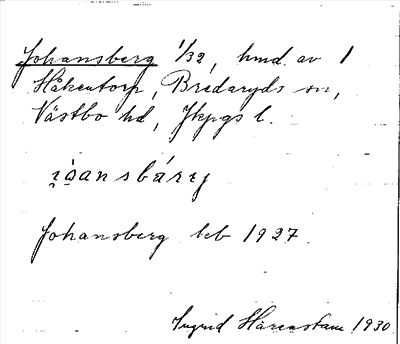 Johansberg 1/32, hmd. av 1
Håkentorp, Bredaryds sn,
Västbo hd, Jkpgs l.
Johansberg leb 1927
Ingrid Härenstam 1930